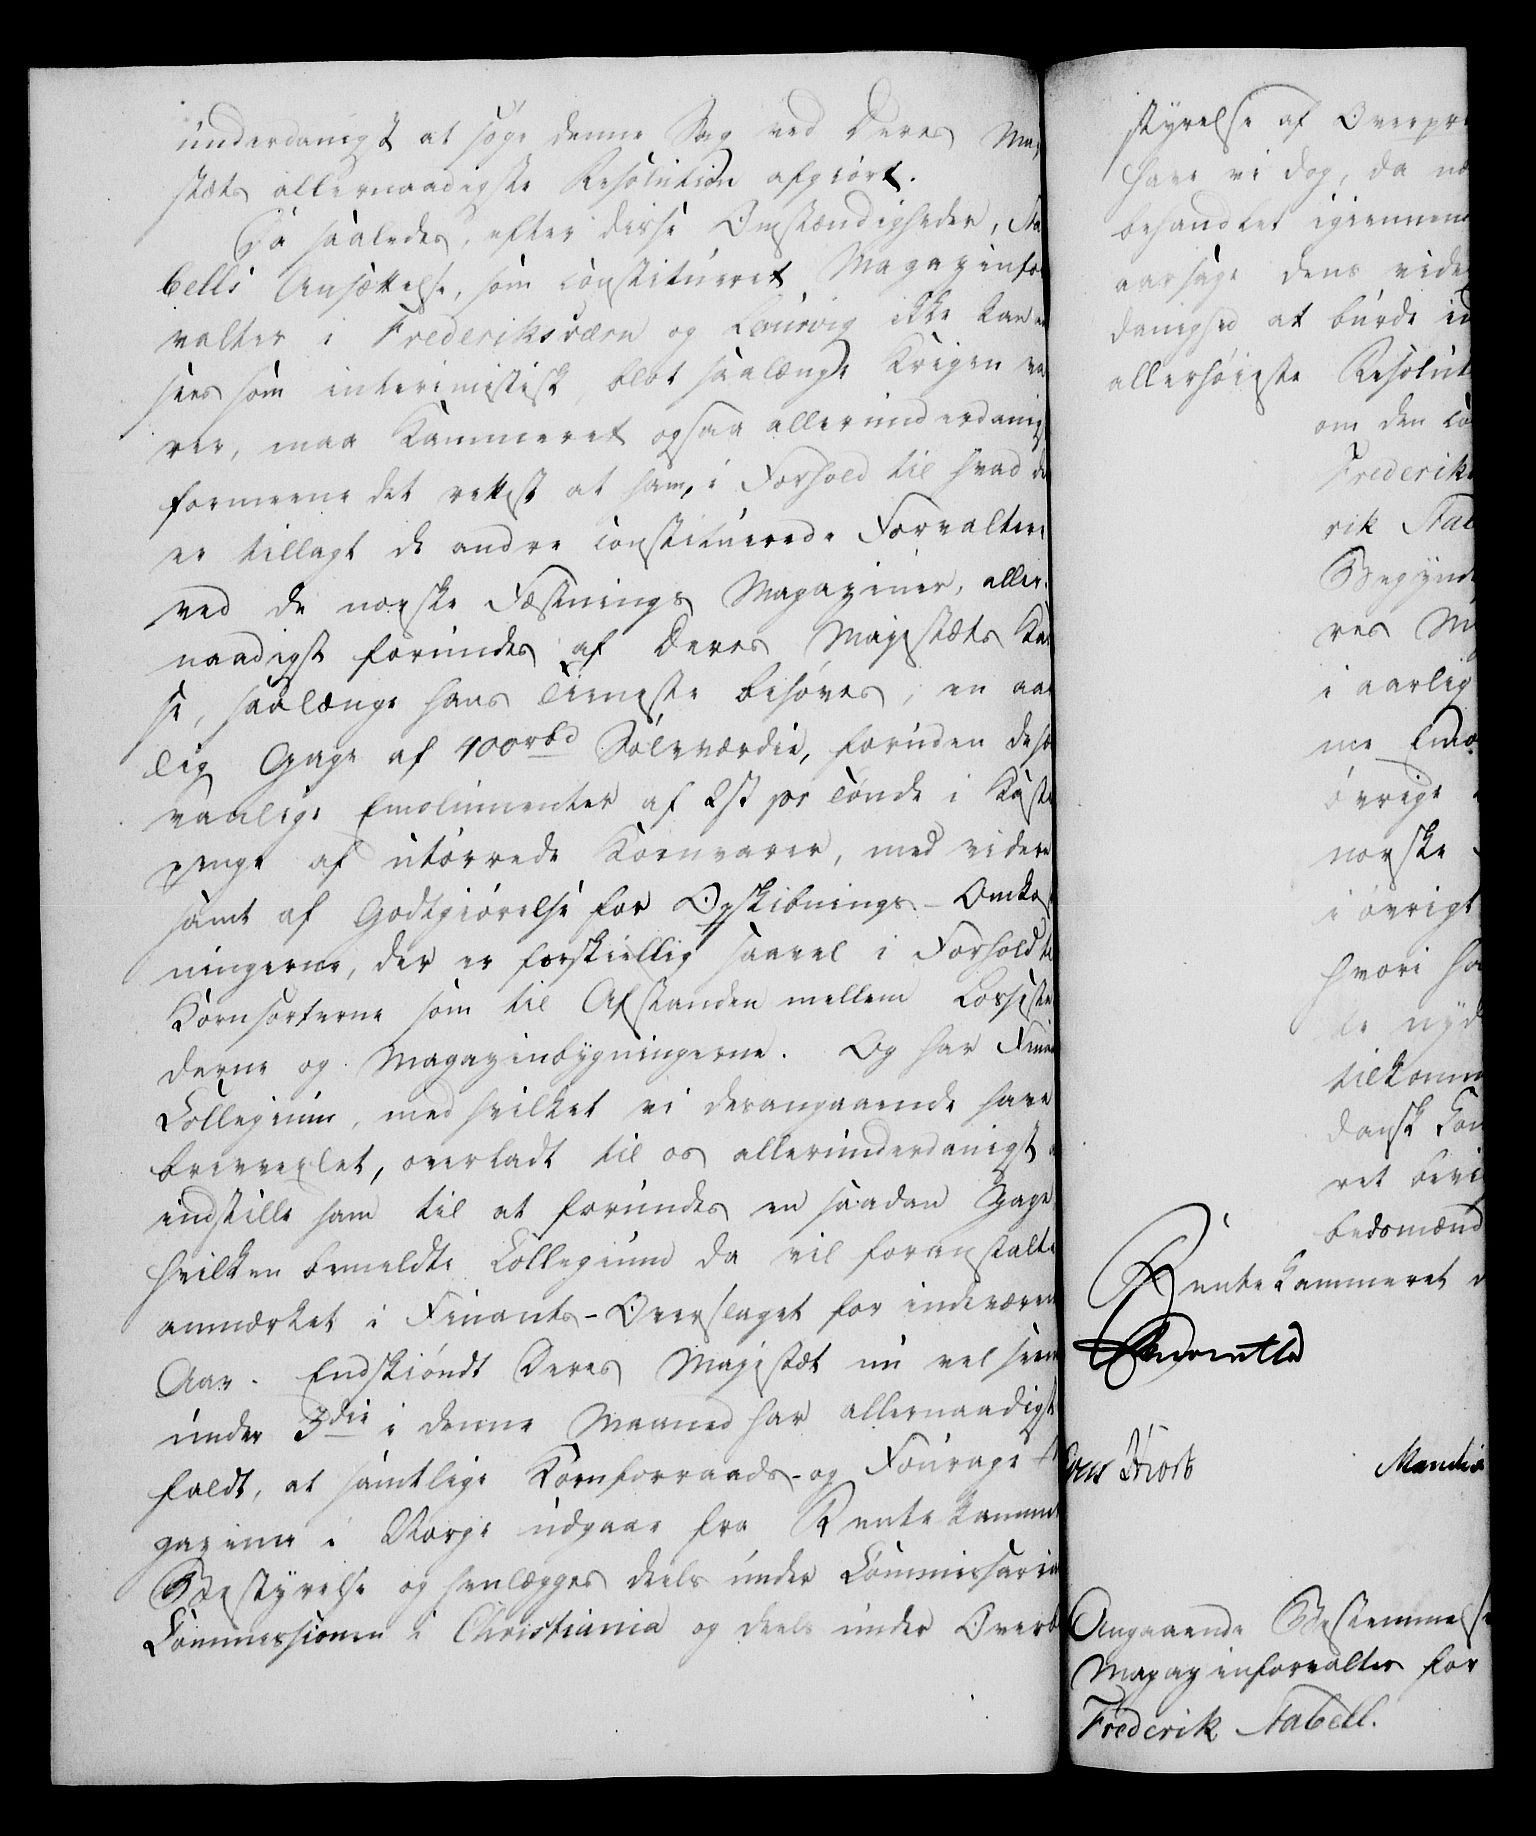 underdanigst at søge denne Sag ved Deres Maj
stæts allernaadigste Resolution afgiort.
Da saaledes, efter disse Omstændigheder, Sta
bells Ansættelse, som constitueret Magazinfor
valter i Frederiksværn og Laurvig ikke kan an
sees som interimistisk, blot saalænge Krigen va
rer, maa Kammeret ogsaa allerunderdanigst
formeene det rettest at ham, i Forhold til hvad der
er tillagt de andre constituerede Forvaltere
ved de norske Fæstnings Magaziner, aller-
naadigst forundes af Deres Majestæts Kas
se, saalænge hans Tieneste behøves, en aar
lig Gage af 400 rbd Sølvværdie, foruden de sæd
vanlige Emolumenter af 2 s pr Tønde i Kaste
penge af utørrede Kornvarer, med videre
samt af Godtgiørelse for Opskibnings-Omkost
ningerne, der er forskiellig saavel i Forhold til
Kornsorterne som til Afstanden mellem Losseste
derne og Magazinbygningerne. Og har Finants
Collegium, med hvilket vi derangaaende have
brevvexlet, overladt til os allerunderdanigst at
indstille ham til at forundes en saadan Gage,
hvilken bemeldte Collegium da vil foranstalte
anmærket i Finants-Overslaget for indeværende
Aar. Endskiøndt Deres Majestæt nu vel siden
under 3die i denne Maaned har allernaadigst
faldt, at samtlige Kornforraads- og Fourage-Ma
gaziner i Norge udgaae fra Rentekammerets
Bestyrelse og henlægges deels under Commissariats
Commissionen i Christiania og deels under Overb
styrelse af Overpro
have vi dog, da nær
behandlet igiennem
aarsage dens vide
danighed at burde in
allerhøieste Resolut
om den co
Frederik
rik Stab
Begynd
res Ma
i aarlig
me Emo
øvrige
norske
i øvrigt
hvori ha
le nyd
tilkomm
dansk Co
ret bevi
bedsmænd
Rentekammeret d
Angaaende Bestemmelse
Magazinforvalter for
Frederik Stabell.